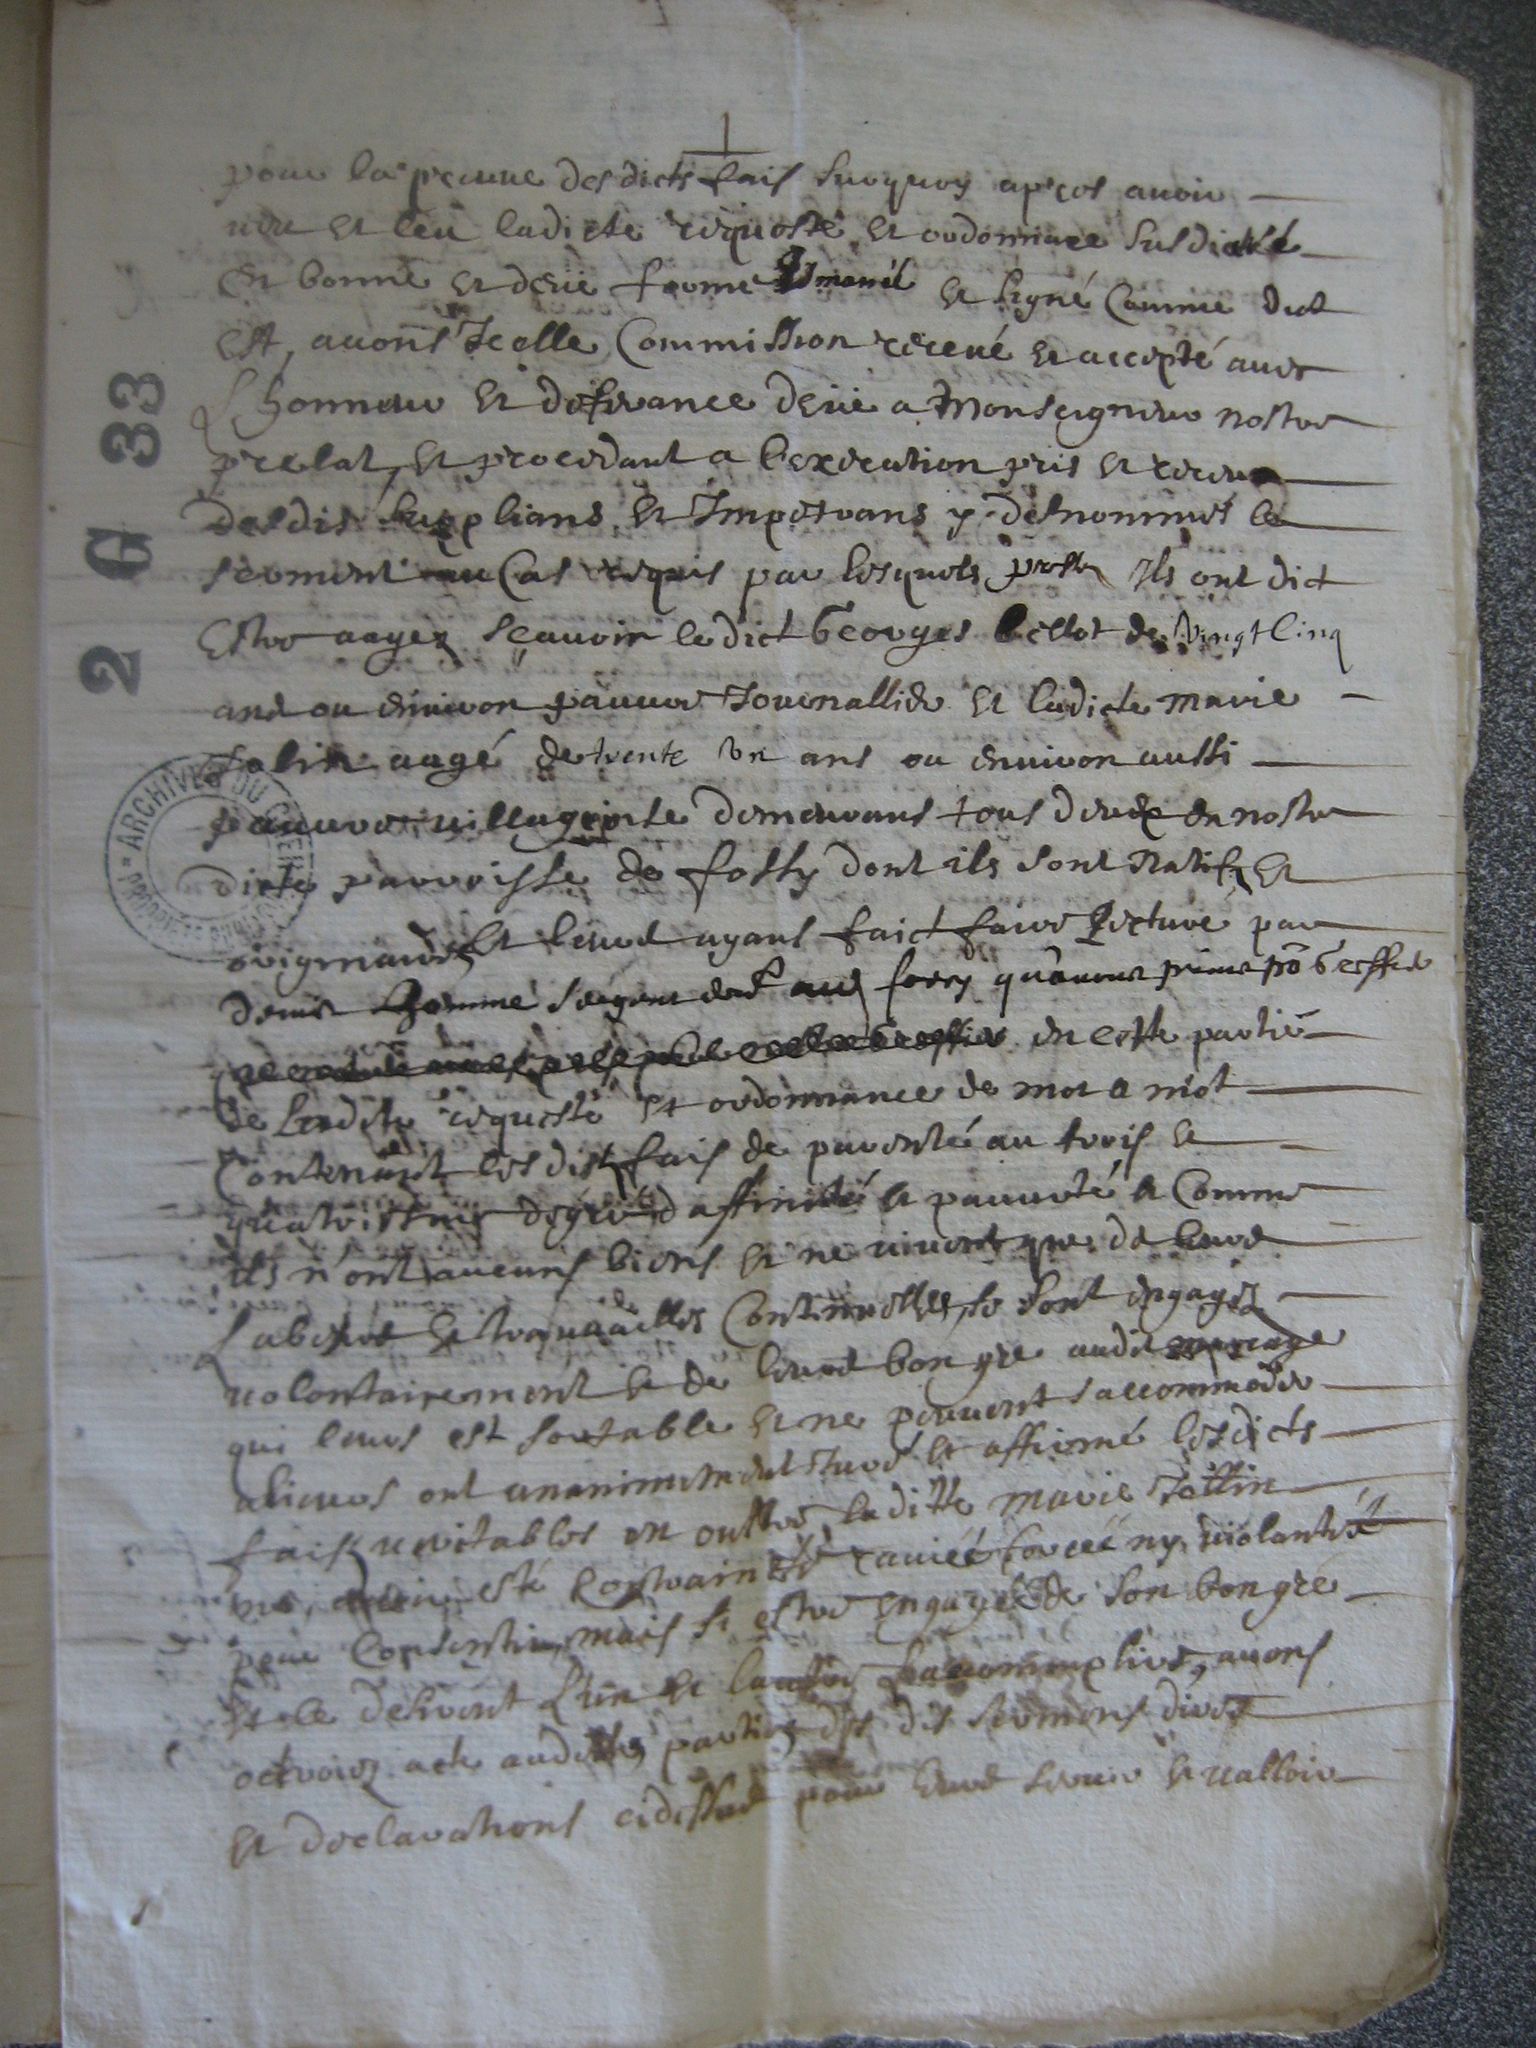 pour la preuue desdicts fais surquoy apres auoir
veu et leu ladicte requeste et ordonnance susdicte
en bonne et deüe forme Emané et signé comme dict
est, auons Icelle Commission receue et accepté auec
L'honneur et deferance deüe a Monseigneur nostre
prelat, et procedant a l'execution pris et receu
desdis supplians et Impetrans y desnommés le
serment au cas requis par lesquels prestez Ils ont dict
Estre aagez scauoir ledict Georges bellot de vingt cinq
ans ou enuiron pauure Journallier et ladicte marie
aagé de trente un ans ou enuiron aussi
pauure villageoise demeurans tous deux en nostre
dicte parroisse de fossy dont ils sont natifz et
originaires Et leurs ayans faict faire Lecture par
denis homme sergent
en ceste partie
de ladite requeste et ordonnance de mot a mot
Contenant lesdist fais de parenté au trois et
quatriesme degré d'affinité et pauureté et comme
ils n'ont aucuns biens et ne viuent que de leurs
Labeurs et trauailles Continuelles, se sont engagez
volontairement et de leurs bon gré audit mariage
qui leurs est sortable et ne peuuent saccommoder
alieurs ont unanimement Juré et affirmé lesdicts
fais veritables en oultre laditte marie
esté Contrainte rauiée forcée ny violantée
pour consentir mais si estre engagée de son bon gré
et le desirent L'un et lautre auons
octroiez acte audittes parties des dis sermens dires
et declarations cidessus pour leurs seruir et valloir
2 G 33
ARCHIVES DU CHER
PROPRIÉTÉ PUBLIQUE